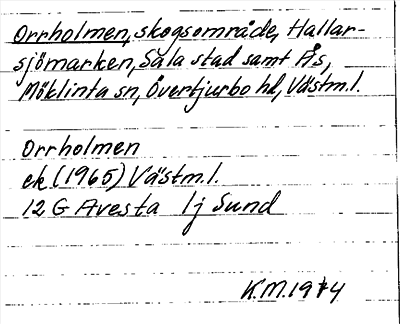 Orrholmen, skogsområde, Hallar-
sjömarken, Sala stad samt Ås,
Möklinta sn, Övertjurbo hd, Västm.l.
Orrholmen
ek (1965) Västm.l.
12 G Avesta 1j Sund
K.M.1974